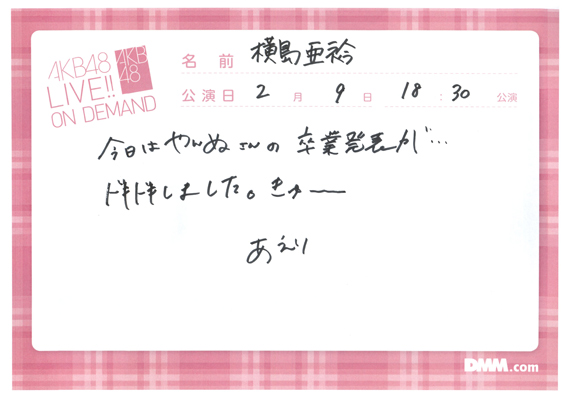 AKB48
LIVE!!
ON DEMAND
AKB
48
名前 横島亜衿
公演日 2月9日 18:30公演
今日はやんぬさんの卒業発表が…
ドキドキしました。きゅ――
あえり
DMM.com